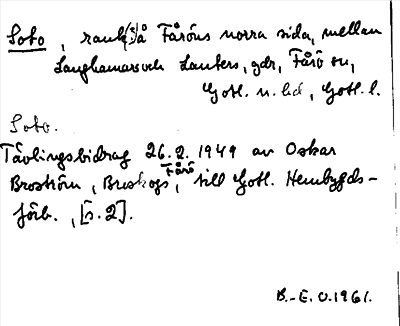 Soto, rauk(?) å Fåröns norra sida, mellan
Langhamars och Lauters, gdr, Fårö sn,
Gotl. n. hd, Gotl. l.
Soto.
Tävlingsbidrag 26.2.1949 av Oskar
Broström, Briskogs, Fårö, till Gotl. Hembygds-
förb., [s. 2].
B.-E. O. 1961.